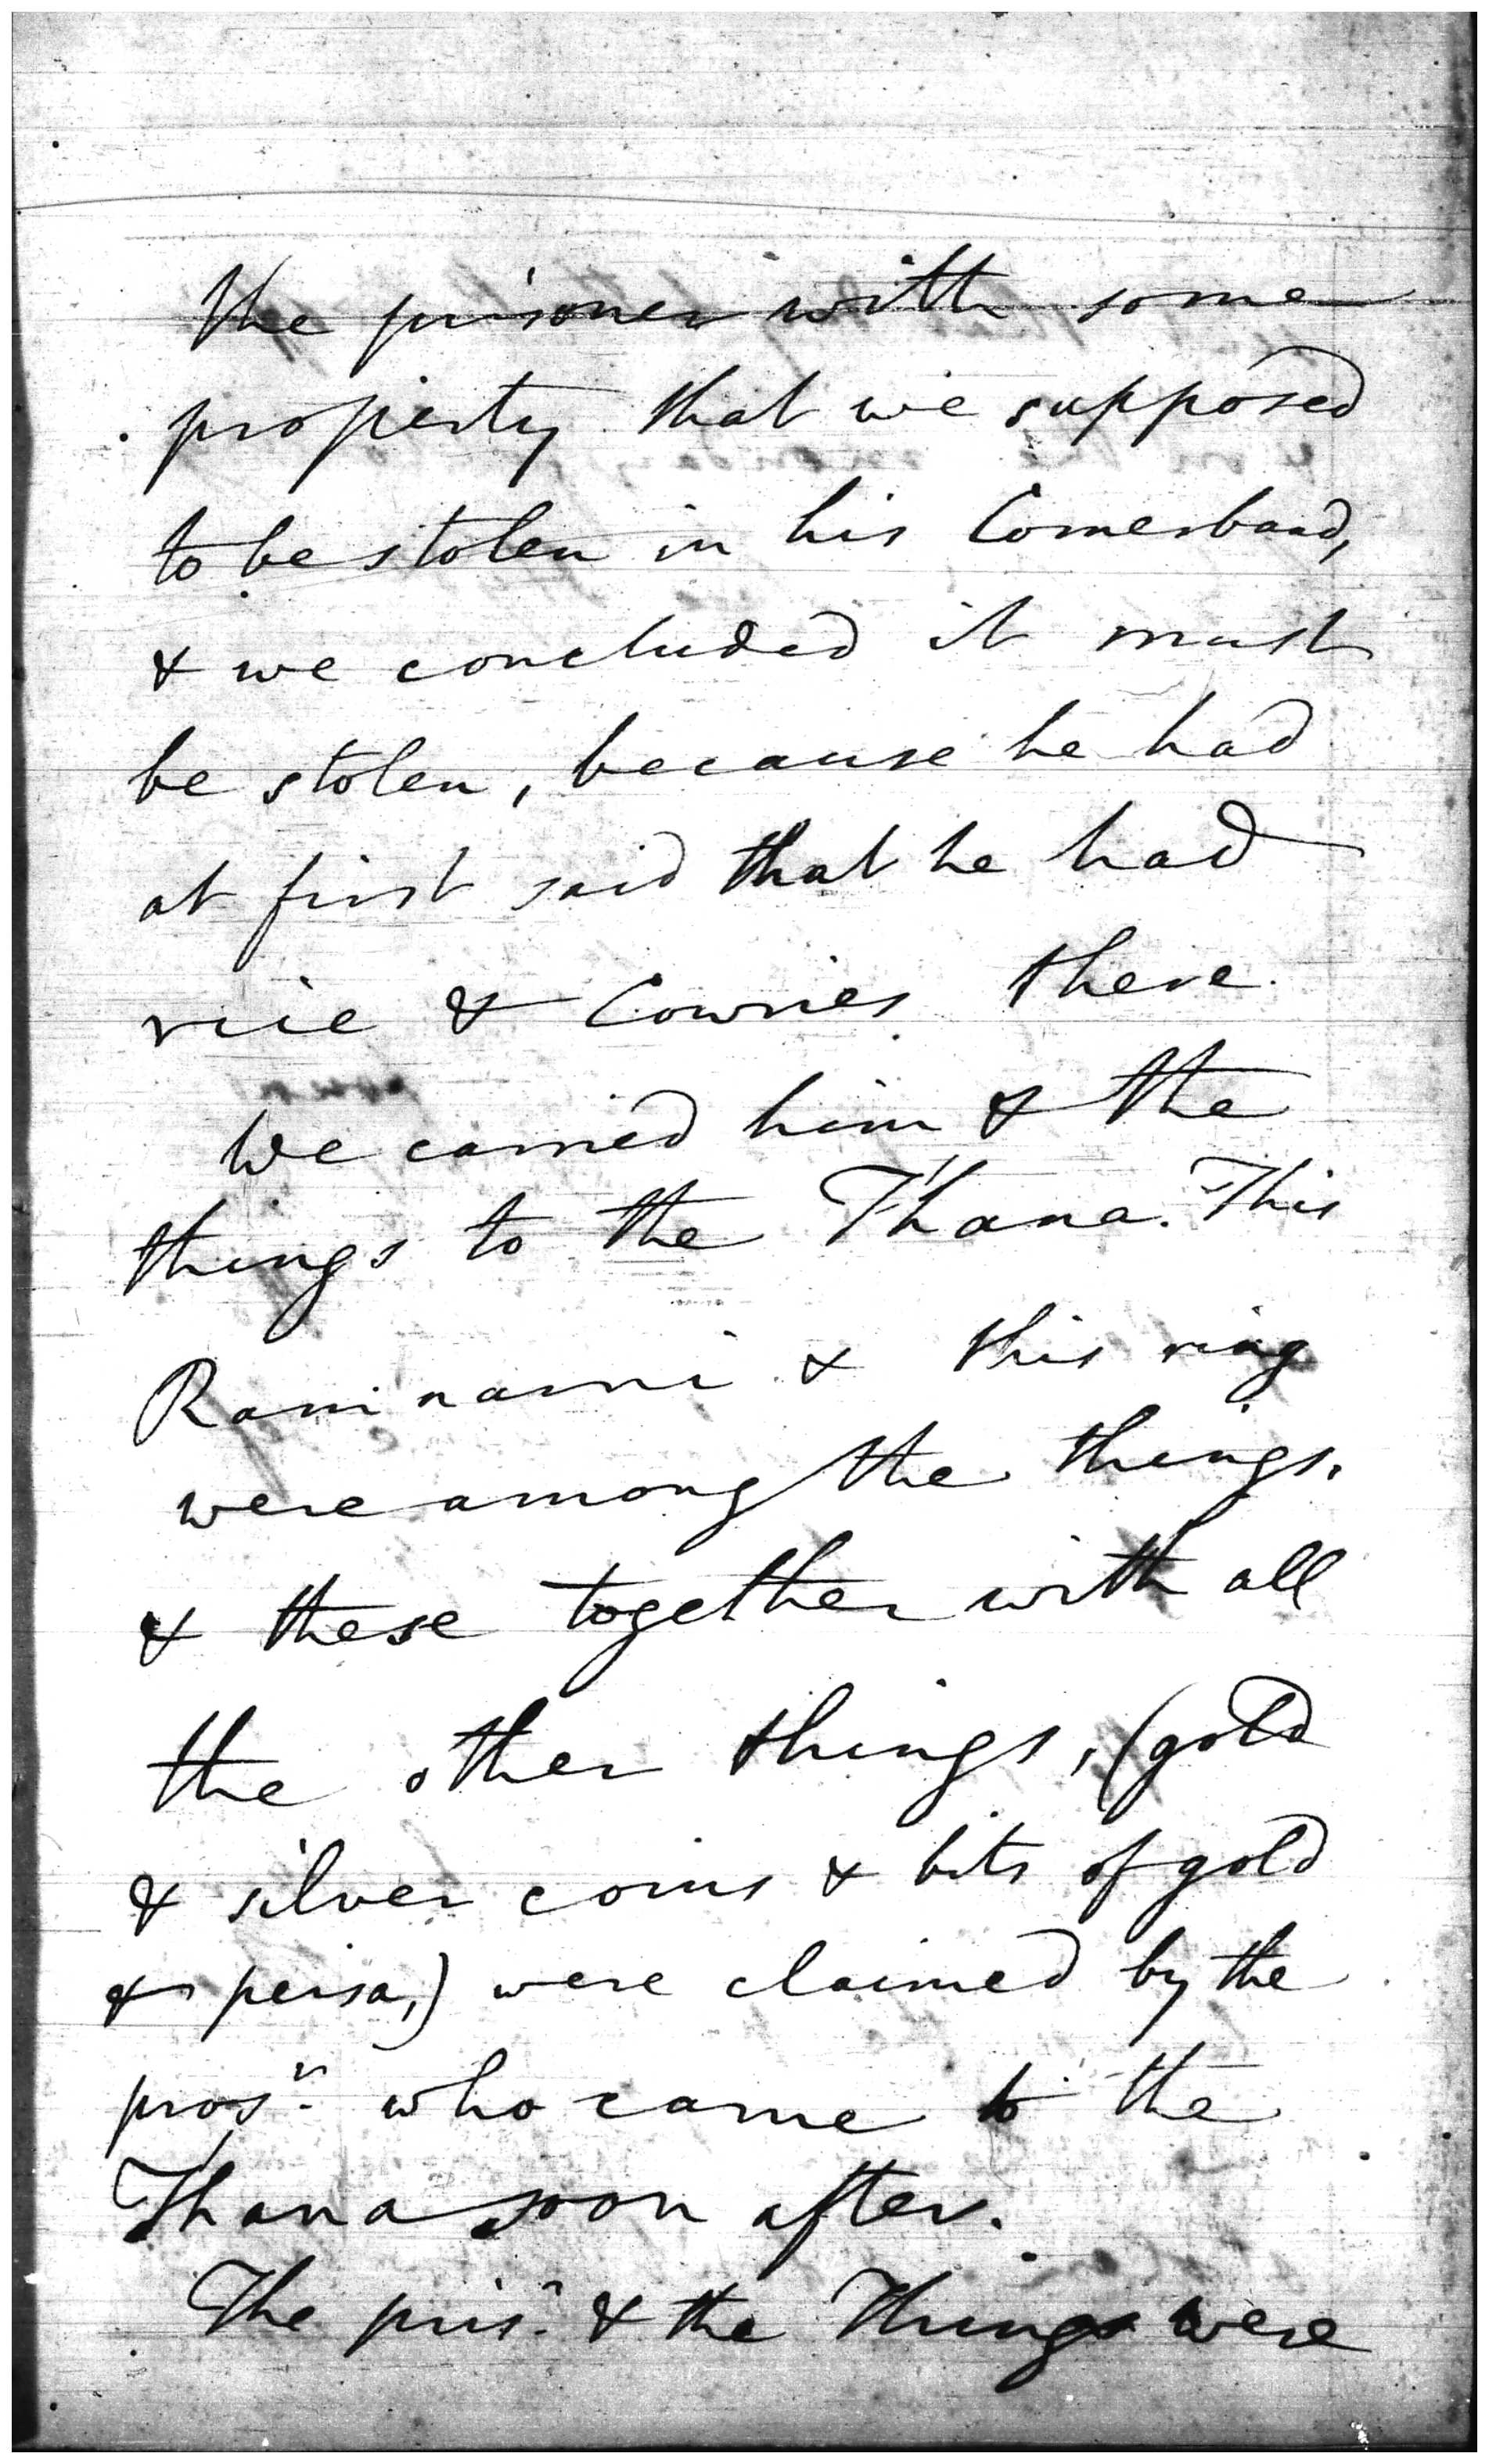 the prisoner with some
property that we supposed
to be stolen in his Comerband,
& we concluded it must
be stolen, because he had
at first said that he had
rice & Cowries there.
We carried him & the
things to the Thana. This
Ramnami & this ring
were among the things.
& these together with all
the other things, (gold
& silver coins & bits of gold
& peisa,) were claimed by the
prosr. who came to the
Thana soon after.
The prisr. & the Things were